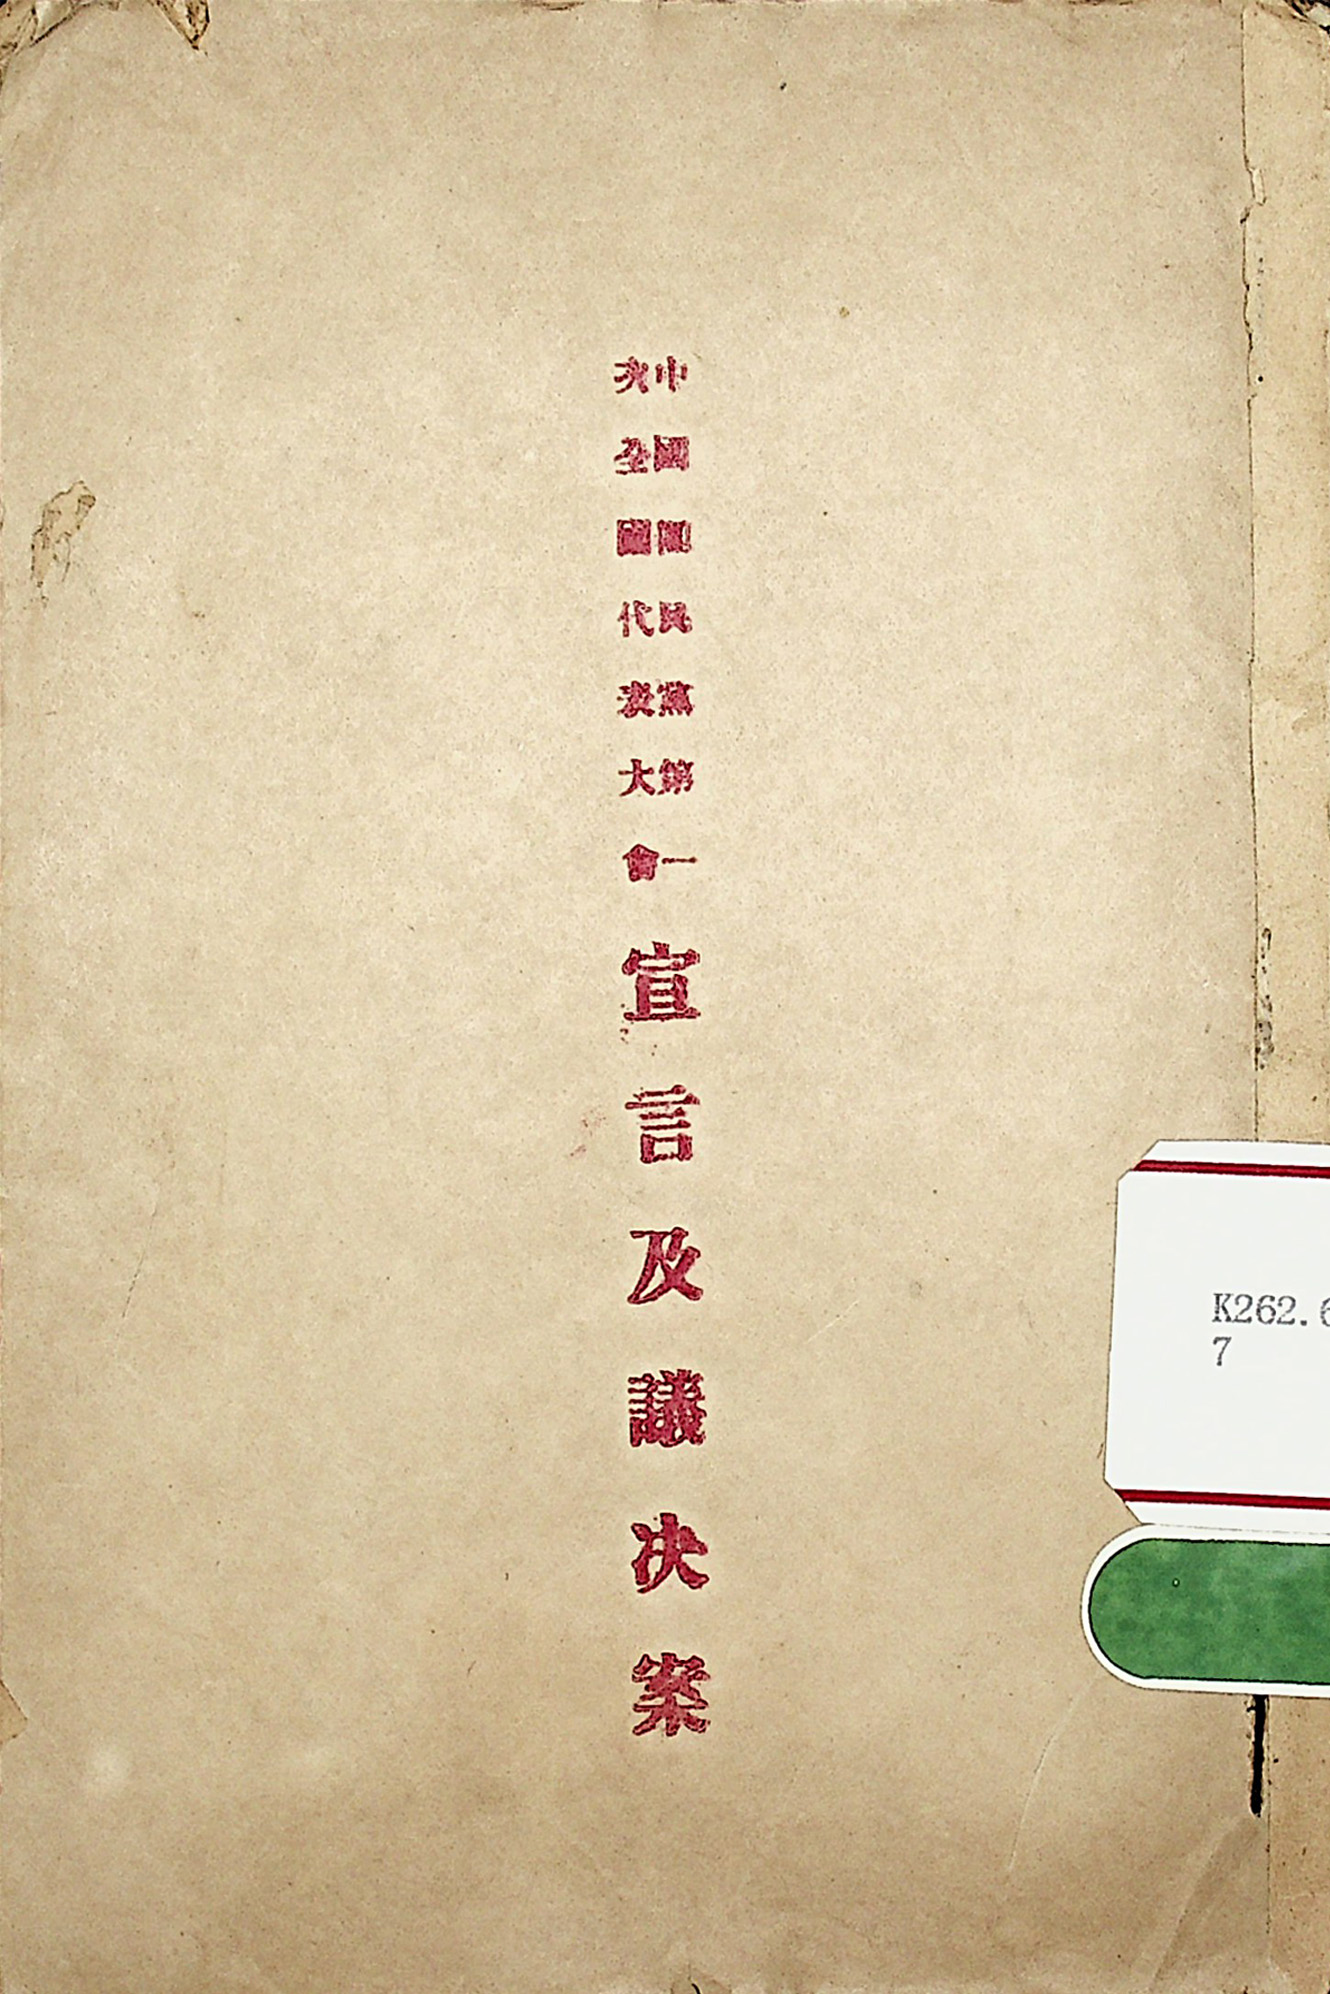 中國國民黨第一
次全國代表大會
宣言及議決案
K262.6
7